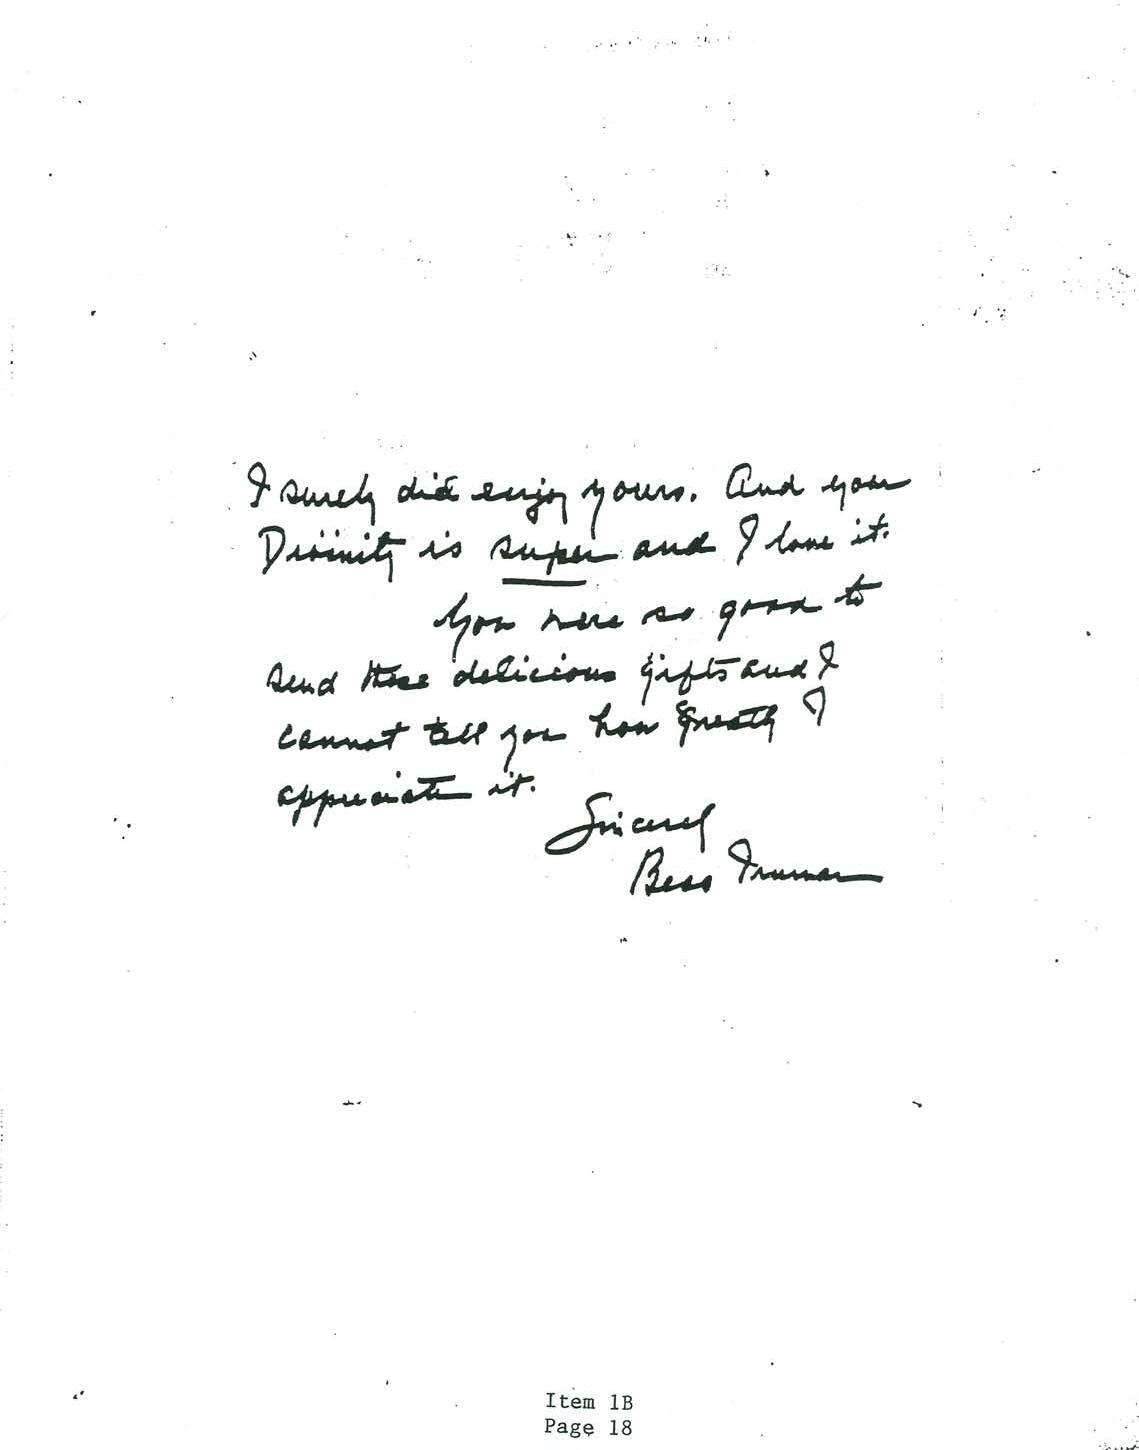 I surely did enjoy yours. And your
Divinity is super and I love it.
You were so good to
send these delicious gifts and I
cannot tell you how greatly I
appreciate it.
Sincerely
Bess Truman
Item 1B
Page 18